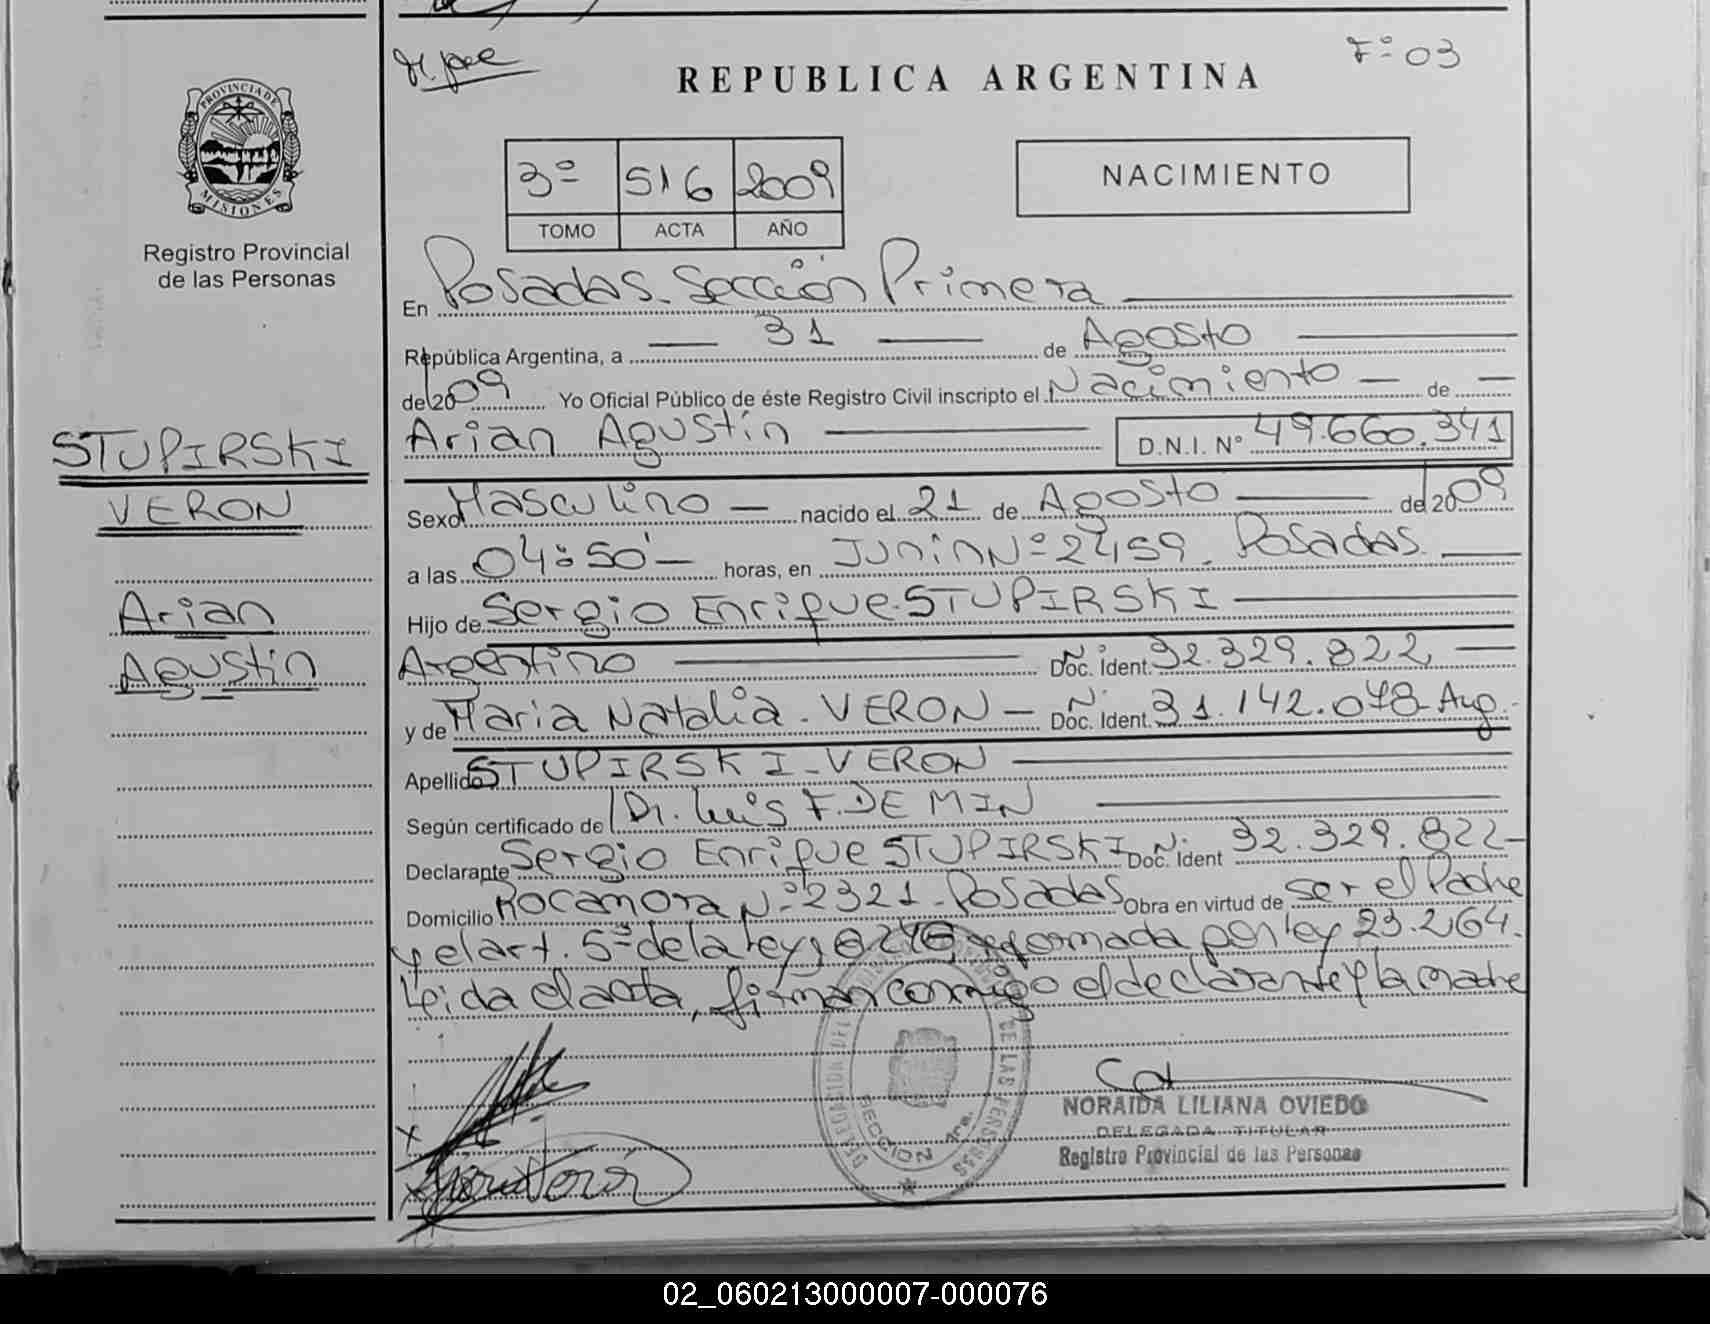 Fº 03
REPUBLICA ARGENTINA
PROVINCIA DE MISIONES
Registro Provincial
de las Personas
3º 516 2009
TOMO ACTA AÑO
NACIMIENTO
En Posadas. Sección Primera
República Argentina, a 31 de Agosto
del 2009 Yo Oficial Público de éste Registro Civil inscripto el Nacimiento de
Arian Agustín D.N.I. Nº 49.660.341
STUPIRSKI
VERON
Arian
Agustin
Sexo Masculino nacido el 21 de Agosto del 2009
a las 04:50' horas, en Junin Nº 2459. Posadas.
Hijo de Sergio Enrique STUPIRSKI
Argentino Nº Doc. Ident. 32.329.822
y de Maria Natalia. VERON Nº Doc. Ident. 31.142.078 Arg.
Apellido STUPIRSKI-VERON
Según certificado de Dr. Luis F. DE MIN
Declarante Sergio Enrique STUPIRSKI Nº Doc. Ident 32.329.822
Domicilio Rocamora Nº 2321 - Posadas Obra en virtud de ser el Padre
y el art. 5º de la ley 18248, reformada por ley 23.264.
Leida el acta, firman conmigo el declarante y la madre
SECCION 1ra.
DE LAS PERSONAS
NORAIDA LILIANA OVIEDO
DELEGADA TITULAR
Registro Provincial de las Personas
02_060213000007-000076